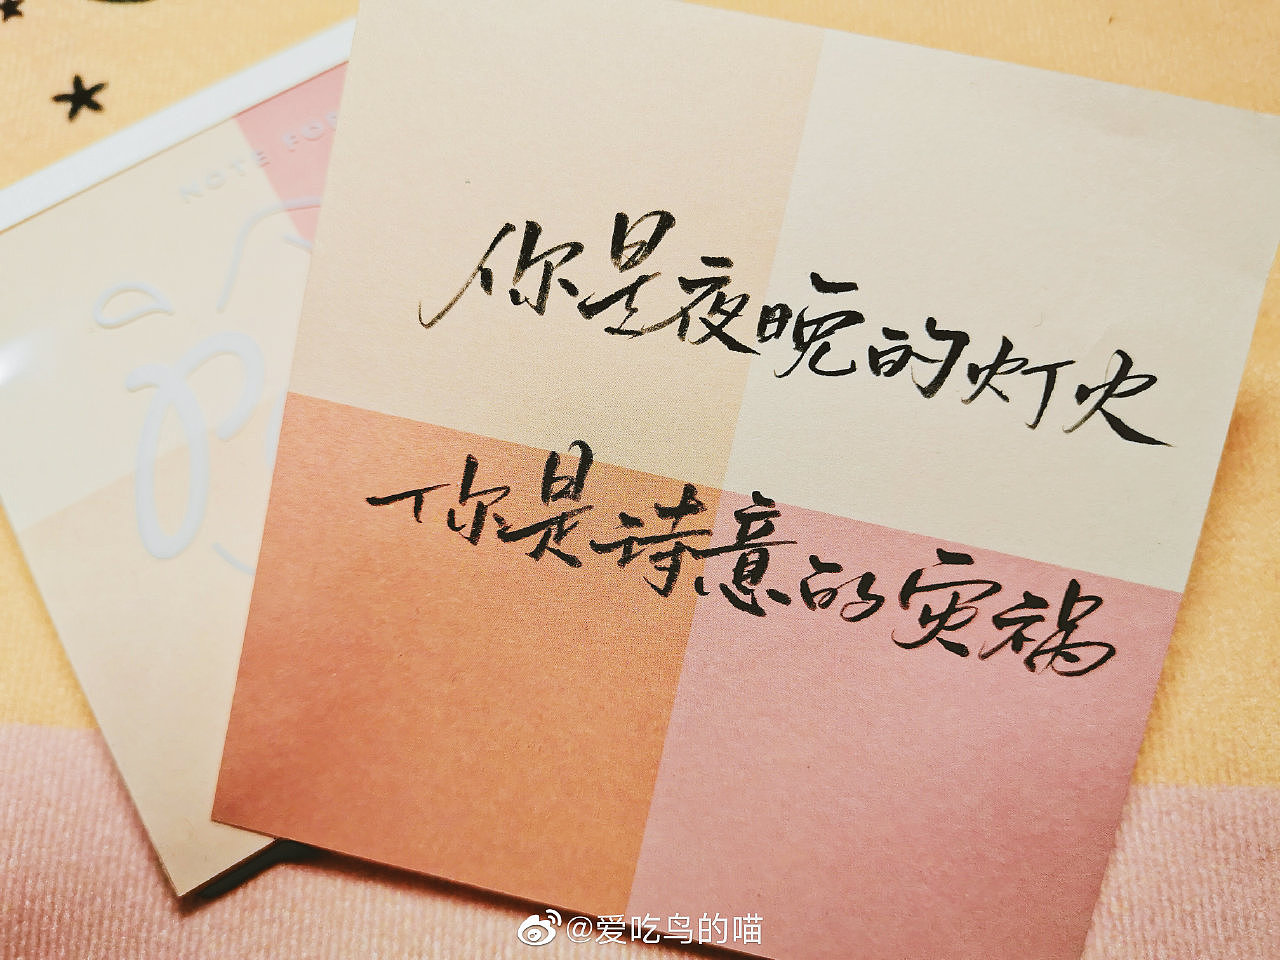 NOTE FOR
你是夜晚的灯火
你是诗意的灾祸
@爱吃鸟的喵